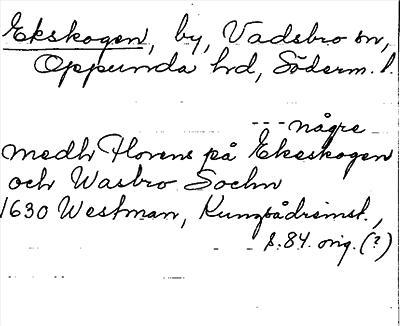 Ekskogen, by, Vadsbro sn,
Oppunda hd, Söderm. l.
--- någre
medh Florens på Ekeskogen
och Wasbro Sochn
1630 Westman, Kumbådrimst.,
s. 84. orig. (?)